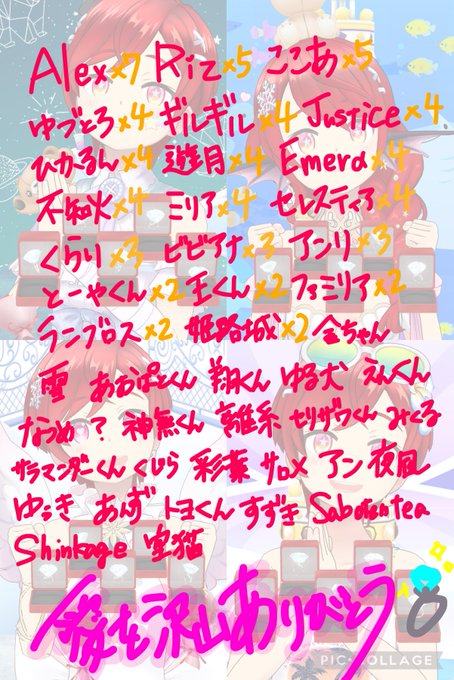 Alex×7 Riz×5 ここあ×5
ゆづとろ×4 ギルギル×4 Justice×4
ひかるん×4 遊月×4 Emera×4
不知火×4 ミリア×4 セレスティア×4
くらり×3 ビビアナ×3 アンリ×3
とーやくん×2 王くん×2 ファミリア×2
ランブロス×2 姫路城×2 金ちゃん
雪 あおぱとくん 翔くん ゆる犬 えんくん
なつめ？ 神無くん 離糸 セリザワくん みくる
サラマンダーくん くじら 彩葉 サロメ アン 夜風
ゆうき あんず トヨくん すずき Sabotentea
Shinkage 空猫
愛を沢山ありがとう
PIC COLLAGE